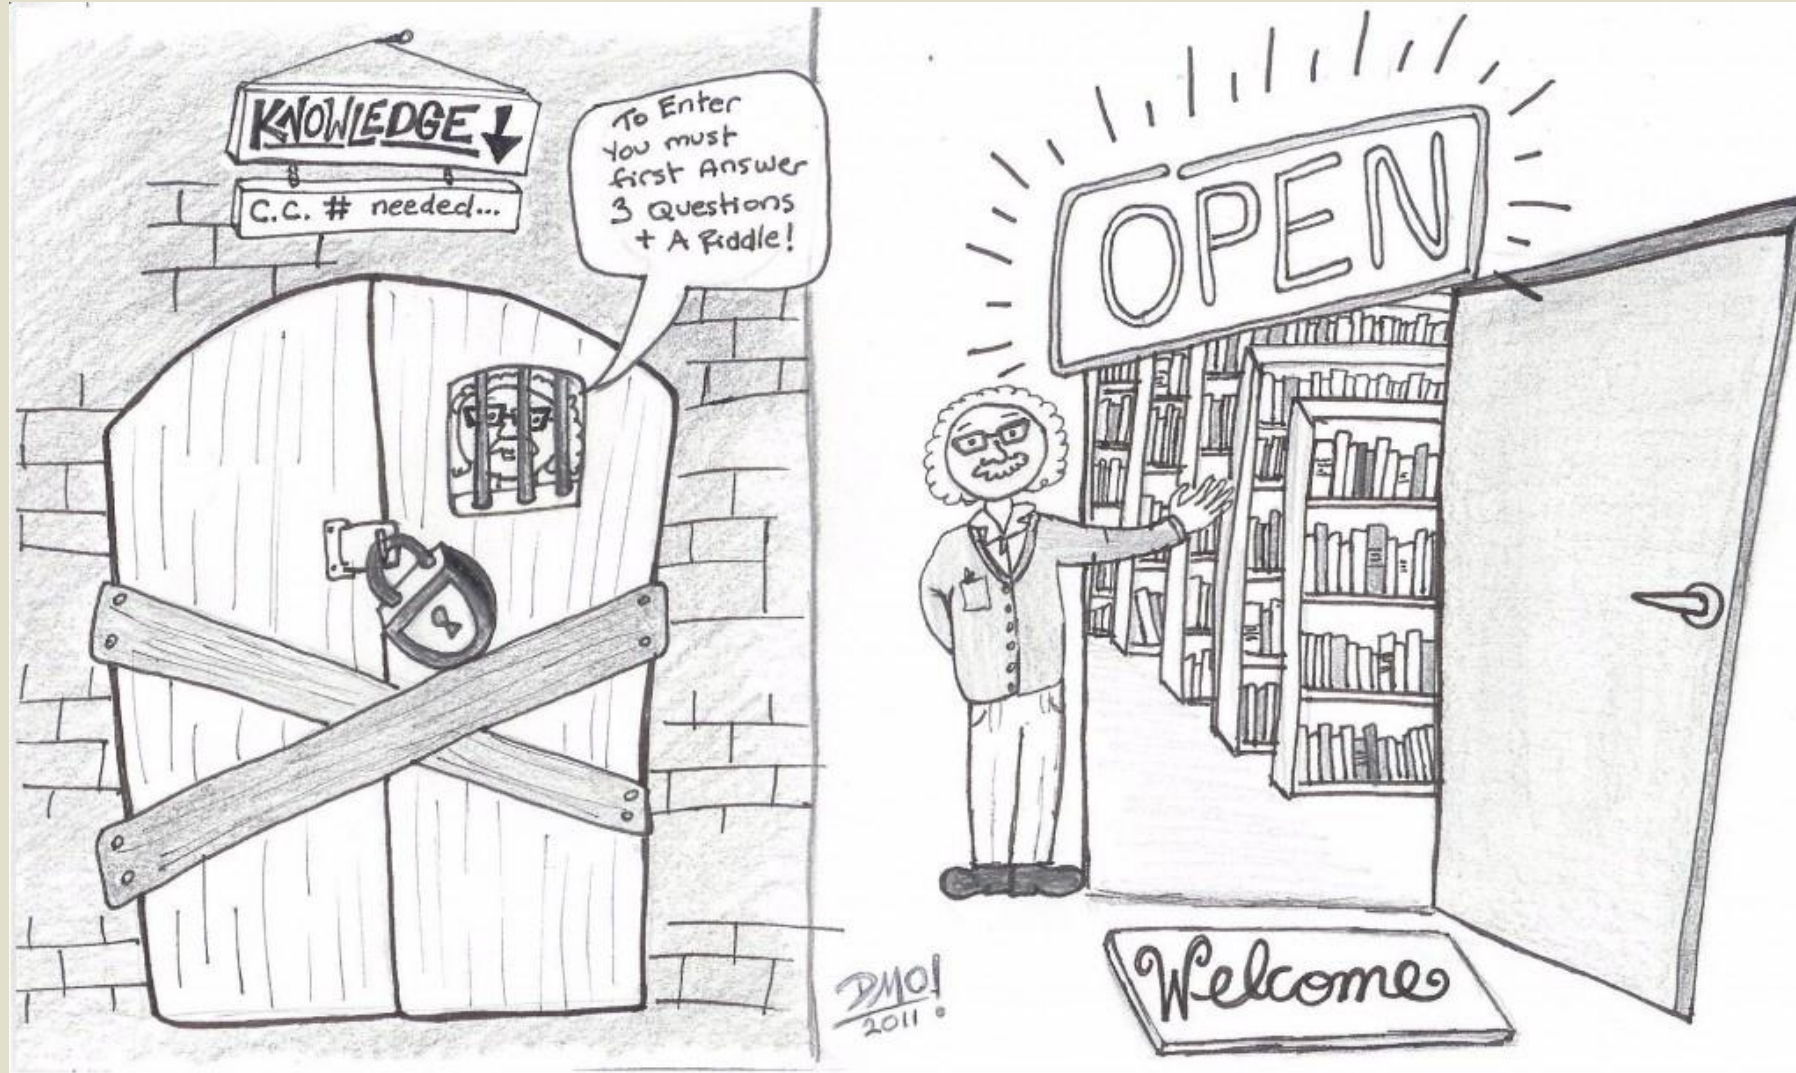 KNOWLEDGE ↓
C.C. # needed...
To Enter
You must
first Answer
3 Questions
+ A Riddle!
OPEN
Welcome
DMO!
2011